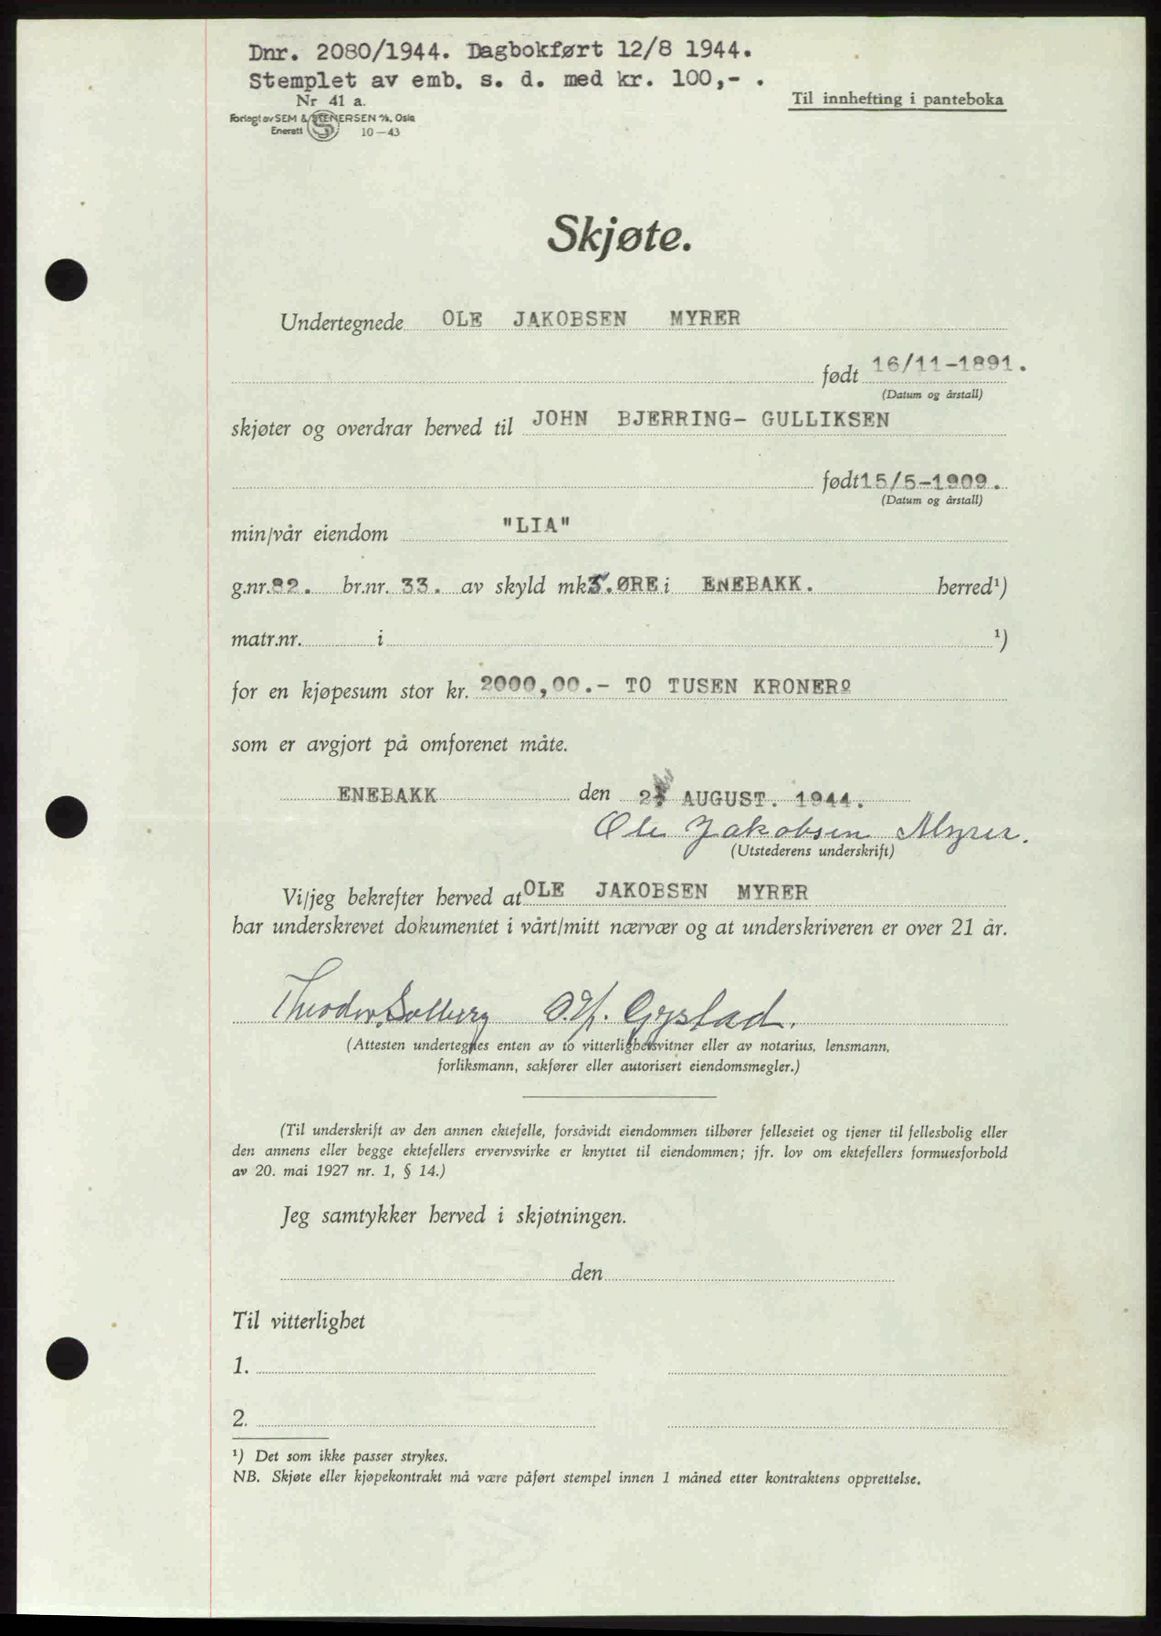 Dnr. 2080/1944. Dagbokført 12/8 1944.
Stemplet av emb. s. d. med kr. 100,- .
Nr 41 a.
Til innhefting i panteboka
Forlagt av SEM & STENERSEN A/S, Oslo
Enerett 10-43
Skjøte.
Undertegnede OLE JAKOBSEN MYRER
født 16/11-1891.
(Datum og årstall)
skjøter og overdrar herved til JOHN BJERRING- GULLIKSEN
født 15/5-1909.
(Datum og årstall)
min/vår eiendom "LIA"
g.nr. 82. br.nr. 33. av skyld mk. 5. ØRE i ENEBAKK. herred¹)
matr.nr. i ¹)
for en kjøpesum stor kr. 2000,00.- TO TUSEN KRONER
som er avgjort på omforenet måte.
ENEBAKK den AUGUST. 1944.
Ole Jakobsen Myrer.
(Utstederens underskrift)
Vi/jeg bekrefter herved at OLE JAKOBSEN MYRER
har underskrevet dokumentet i vårt/mitt nærvær og at underskriveren er over 21 år.
Theodor Solberg Gystad.
(Attesten undertegnes enten av to vitterlighetsvitner eller av notarius, lensmann,
forliksmann, sakfører eller autorisert eiendomsmegler.)
(Til underskrift av den annen ektefelle, forsåvidt eiendommen tilhører felleseiet og tjener til fellesbolig eller
den annens eller begge ektefellers ervervsvirke er knyttet til eiendommen; jfr. lov om ektefellers formuesforhold
av 20. mai 1927 nr. 1, § 14.)
Jeg samtykker herved i skjøtningen.
den
Til vitterlighet
1.
2.
¹) Det som ikke passer strykes.
NB. Skjøte eller kjøpekontrakt må være påført stempel innen 1 måned etter kontraktens opprettelse.